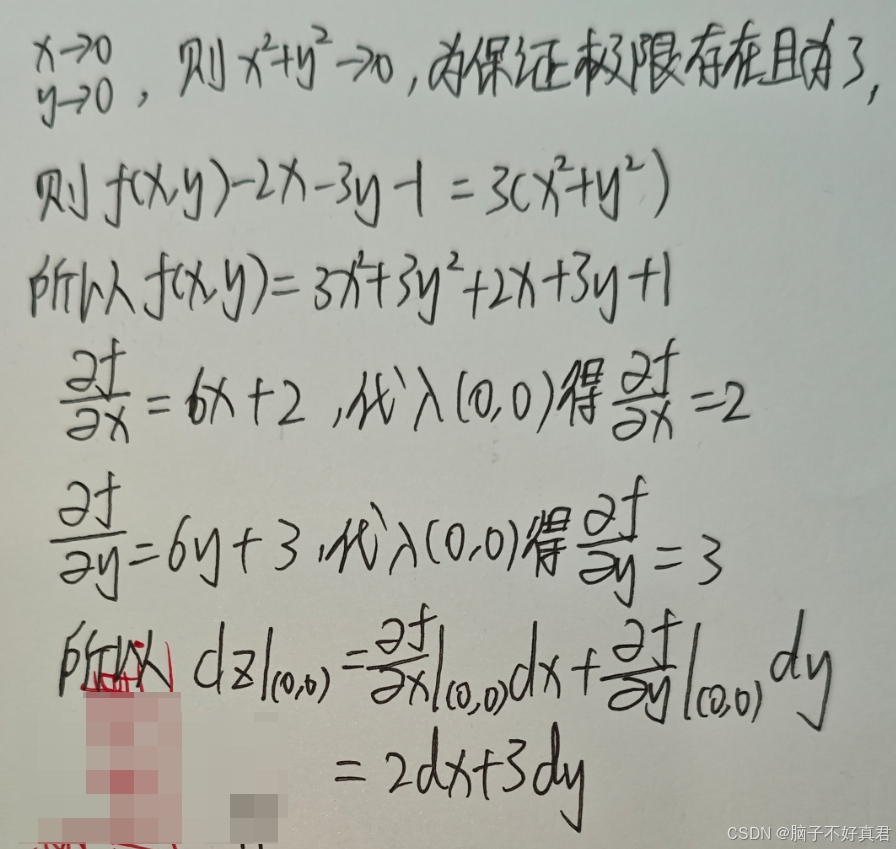 x→0
y→0 , 则 x²+y²→0 , 为保证极限存在且为3,
则 f(x,y)-2x-3y-1 = 3(x²+y²)
所以 f(x,y) = 3x²+3y²+2x+3y+1
∂f/∂x = 6x+2 , 代入(0,0)得 ∂f/∂x = 2
∂f/∂y = 6y+3 , 代入(0,0)得 ∂f/∂y = 3
所以 dz|(0,0) = ∂f/∂x|(0,0) dx + ∂f/∂y|(0,0) dy
= 2dx+3dy
CSDN @脑子不好真君